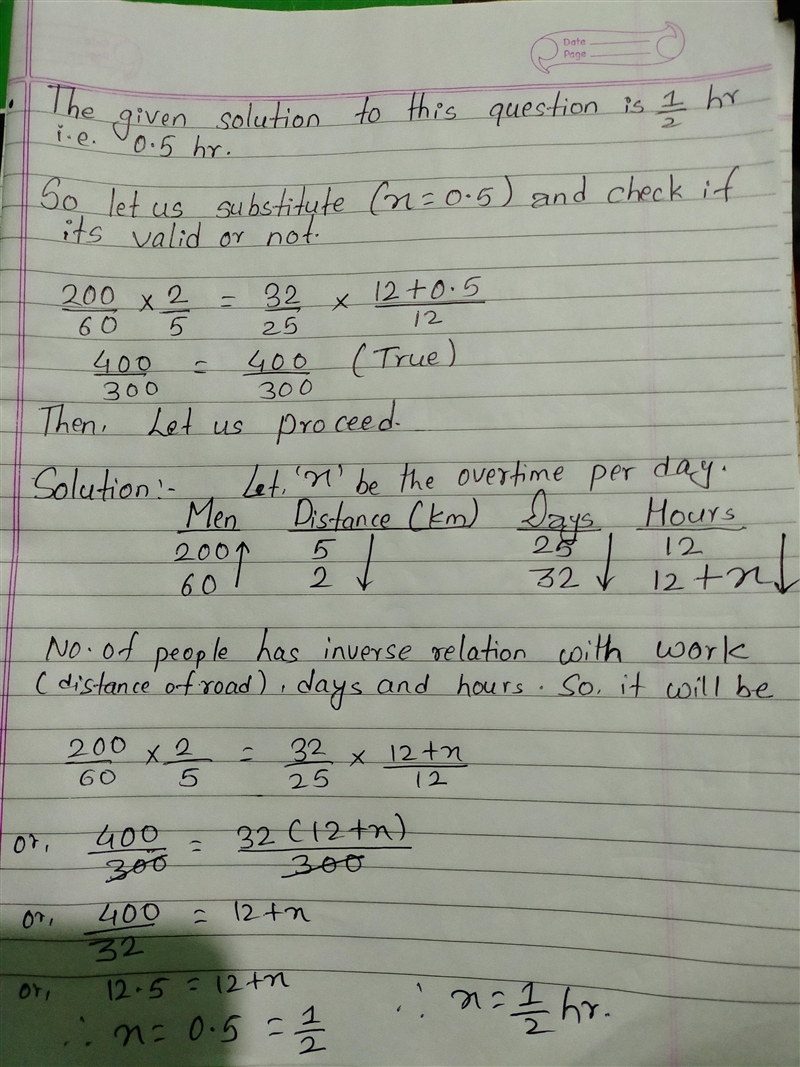 Date
Page
The given solution to this question is 1/2 hr
i.e. 0.5 hr.
So let us substitute (x = 0.5) and check if
its valid or not.
200/60 × 2/5 = 32/25 × (12+0.5)/12
400/300 = 400/300 (True)
Then, Let us proceed.
Solution:- Let, 'x' be the overtime per day.
Men Distance (km) Days Hours
200↑ 5 ↓ 25 ↓ 12 ↓
60 2 32 12+x
No. of people has inverse relation with work
(distance of road), days and hours. So, it will be
200/60 × 2/5 = 32/25 × (12+x)/12
or, 400/300 = 32(12+x)/300
or, 400/32 = 12+x
or, 12.5 = 12+x
∴ x = 0.5 = 1/2 ∴ x = 1/2 hr.